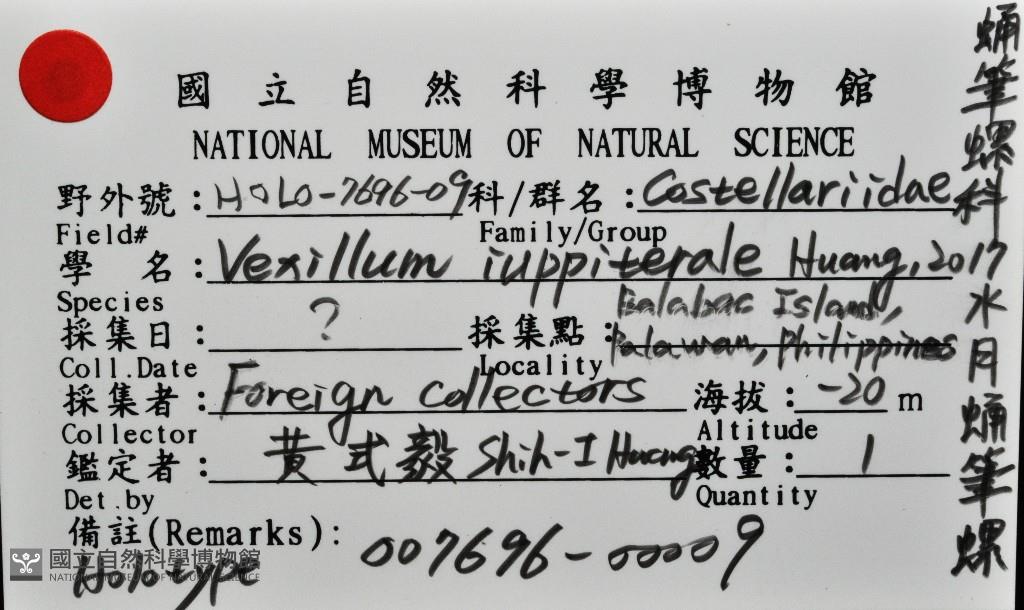 國立自然科學博物館
NATIONAL MUSEUM OF NATURAL SCIENCE
野外號：HOLO-7696-09 科/群名：Costellariidae
Field# Family/Group
學 名：Vexillum iuppiterale Huang, 2017
Species
採集日：? 採集點：Balabac Island,
Palawan, Philippines
Coll.Date Locality
採集者：Foreign collectors 海拔：-20 m
Collector Altitude
鑑定者：黃式毅 Shih-I Huang 數量：1
Det.by Quantity
備註(Remarks): 007696-00009
Holotype
國立自然科學博物館
NATIONAL MUSEUM OF NATURAL SCIENCE
蛹筆螺科
水月蛹筆螺